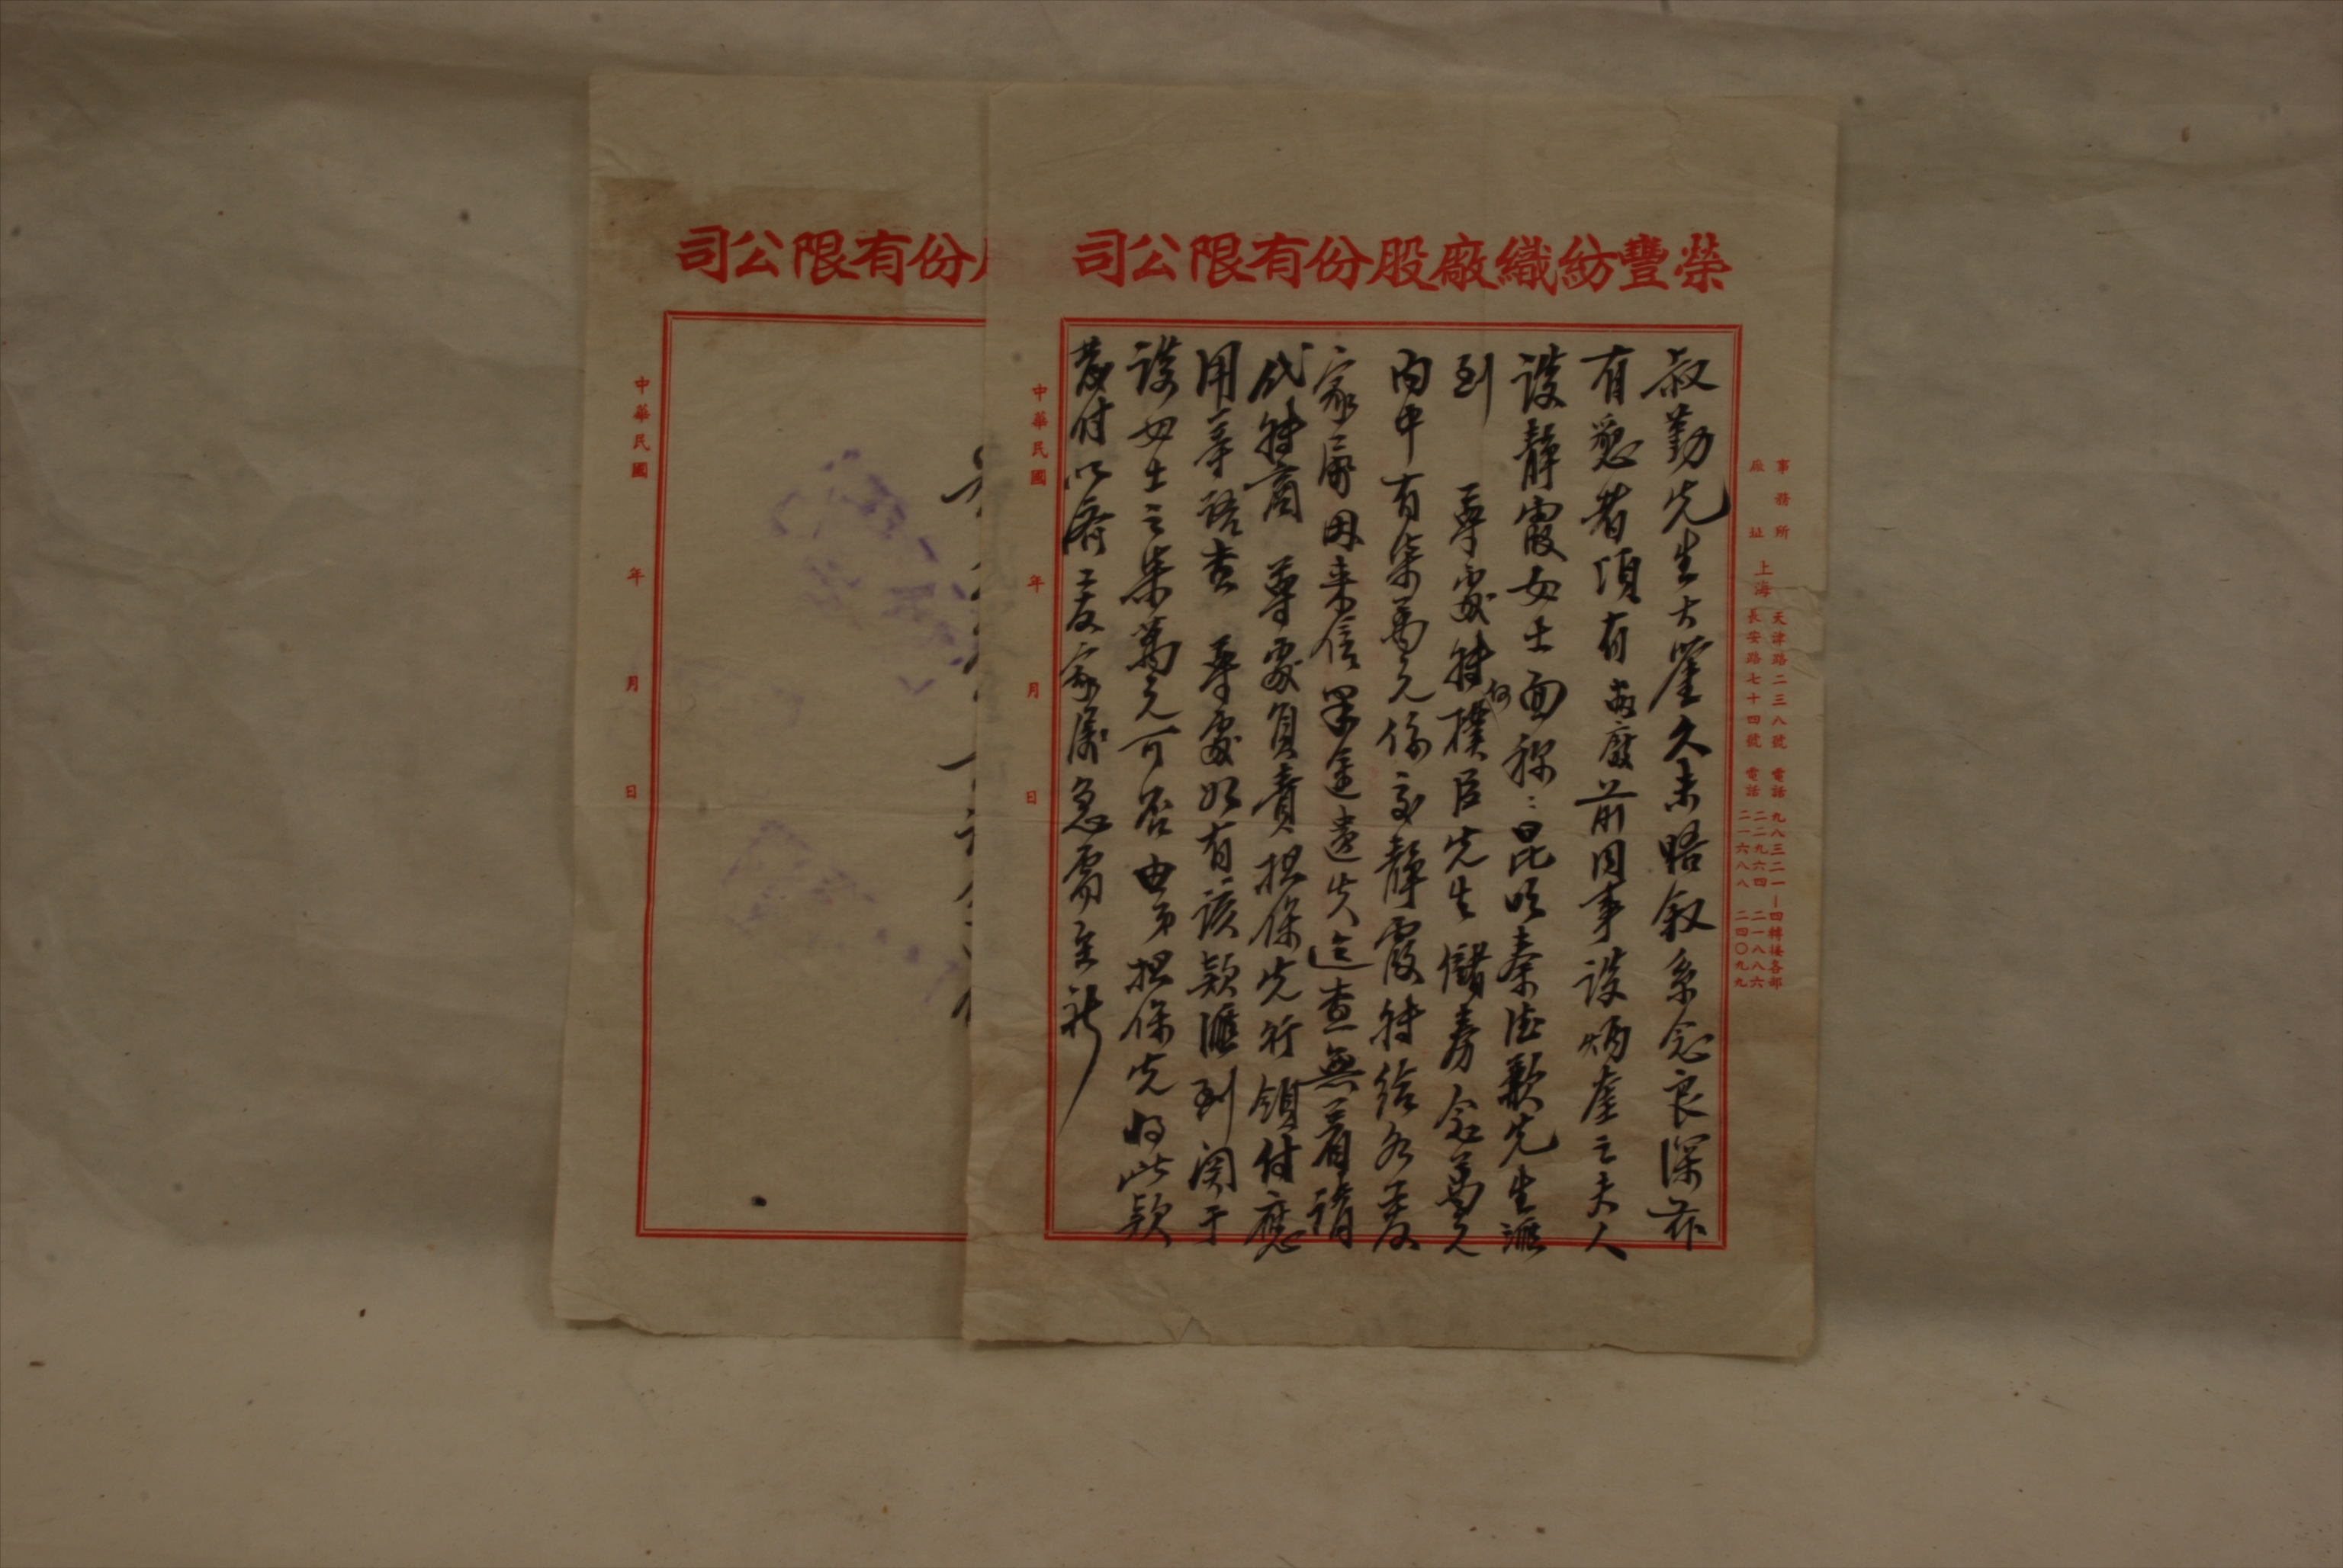 榮豐紡織廠股份有限公司
事務所 上海 天津路二三八號 電話 九八三二一—四轉接各部
廠址 長安路七十四號 電話 二二九六四 二一八八六
二一六八八 二四〇九九
叔勤先生大鑒久未晤敘系念良深茲
有懇者頃有敝廠前同事談炳奎之夫人
談靜霞女士面稱：昆明秦德歉先生滙
到 尊處轉何樸臣先生儲券念萬元
內中有柒萬元係交靜霞轉給各眷
家屬因來信單途遺失迄查無着請
代轉商 尊處負責担保先行領付應
用等語查 尊處如有該款滙到関于
談女士之柒萬元可否由弟担保先將此款
發付以濟眷家屬急需至祈
中華民國 年 月 日
份有限公司
中華民國 年 月 日